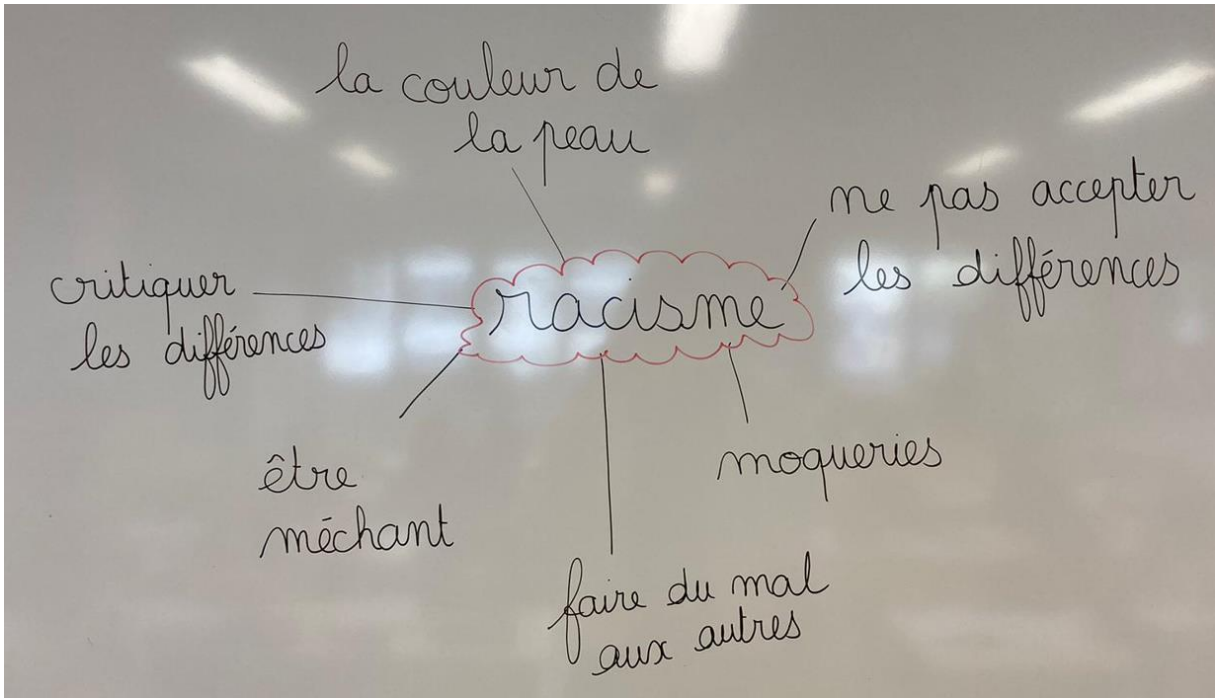 la couleur de
la peau
ne pas accepter
les différences
critiquer
les différences
racisme
être
méchant
moqueries
faire du mal
aux autres